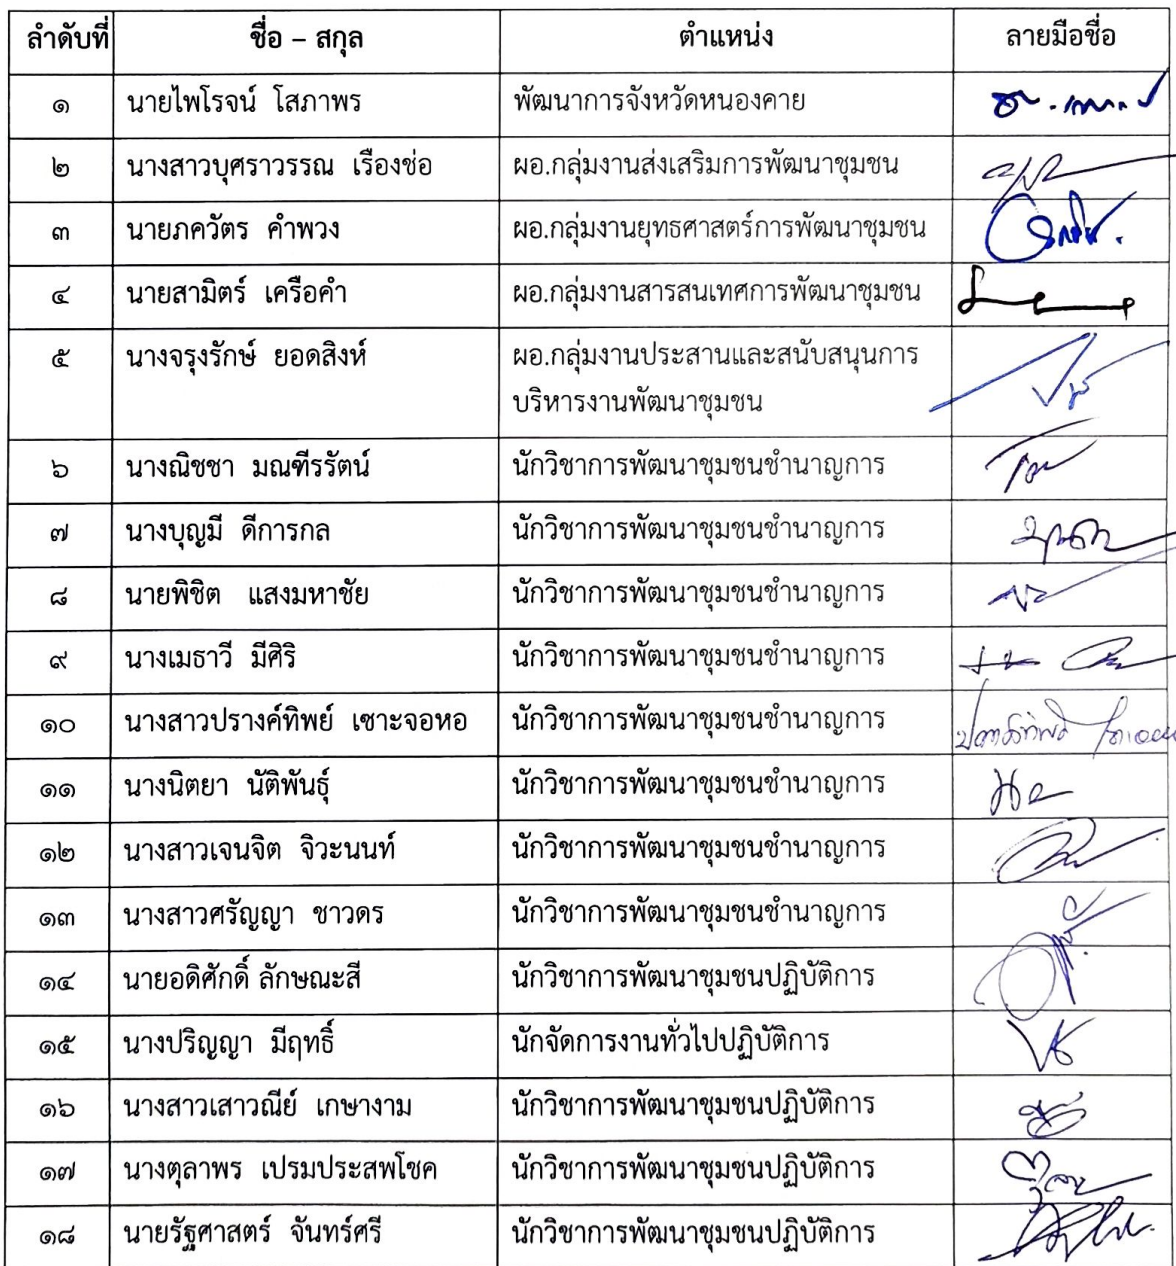 ลำดับที่ ชื่อ – สกุล ตำแหน่ง ลายมือชื่อ
๑ นายไพโรจน์ โสภาพร พัฒนาการจังหวัดหนองคาย
๒ นางสาวบุศราวรรณ เรืองช่อ ผอ.กลุ่มงานส่งเสริมการพัฒนาชุมชน
๓ นายภควัตร คำพวง ผอ.กลุ่มงานยุทธศาสตร์การพัฒนาชุมชน
๔ นายสามิตร์ เครือคำ ผอ.กลุ่มงานสารสนเทศการพัฒนาชุมชน
๕ นางจรุงรักษ์ ยอดสิงห์ ผอ.กลุ่มงานประสานและสนับสนุนการ
บริหารงานพัฒนาชุมชน
๖ นางณิชชา มณฑีรรัตน์ นักวิชาการพัฒนาชุมชนชำนาญการ
๗ นางบุญมี ดีการกล นักวิชาการพัฒนาชุมชนชำนาญการ
๘ นายพิชิต แสงมหาชัย นักวิชาการพัฒนาชุมชนชำนาญการ
๙ นางเมธาวี มีศิริ นักวิชาการพัฒนาชุมชนชำนาญการ
๑๐ นางสาวปรางค์ทิพย์ เซาะจอหอ นักวิชาการพัฒนาชุมชนชำนาญการ
๑๑ นางนิตยา นัติพันธุ์ นักวิชาการพัฒนาชุมชนชำนาญการ
๑๒ นางสาวเจนจิต จิวะนนท์ นักวิชาการพัฒนาชุมชนชำนาญการ
๑๓ นางสาวศรัญญา ชาวดร นักวิชาการพัฒนาชุมชนชำนาญการ
๑๔ นายอดิศักดิ์ ลักษณะสี นักวิชาการพัฒนาชุมชนปฏิบัติการ
๑๕ นางปริญญา มีฤทธิ์ นักจัดการงานทั่วไปปฏิบัติการ
๑๖ นางสาวเสาวณีย์ เกษางาม นักวิชาการพัฒนาชุมชนปฏิบัติการ
๑๗ นางตุลาพร เปรมประสพโชค นักวิชาการพัฒนาชุมชนปฏิบัติการ
๑๘ นายรัฐศาสตร์ จันทร์ศรี นักวิชาการพัฒนาชุมชนปฏิบัติการ